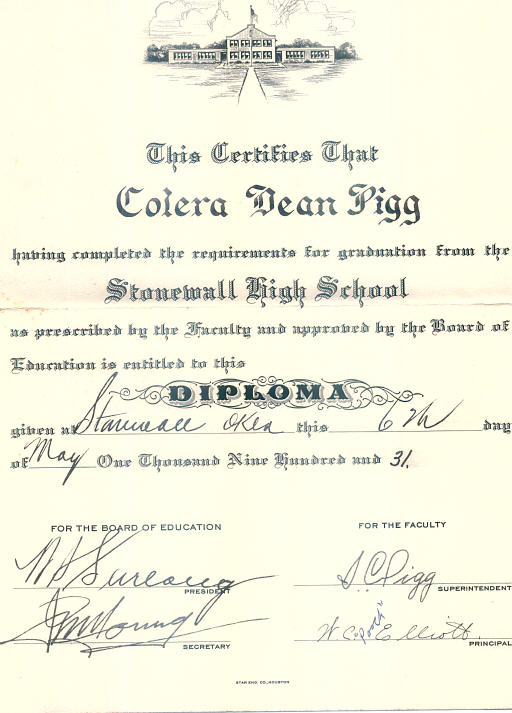 This Certifies That
Colera Dean Pigg
having completed the requirements for graduation from the
Stonewall High School
as prescribed by the Faculty and approved by the Board of
Education is entitled to this
DIPLOMA
given at Stonewall Okla this 6th day
of May One Thousand Nine Hundred and 31.
FOR THE BOARD OF EDUCATION
FOR THE FACULTY
PRESIDENT
S. C. Pigg SUPERINTENDENT
SECRETARY
W. C. "Pooch" Elliott. PRINCIPAL
STAR ENG. CO., HOUSTON